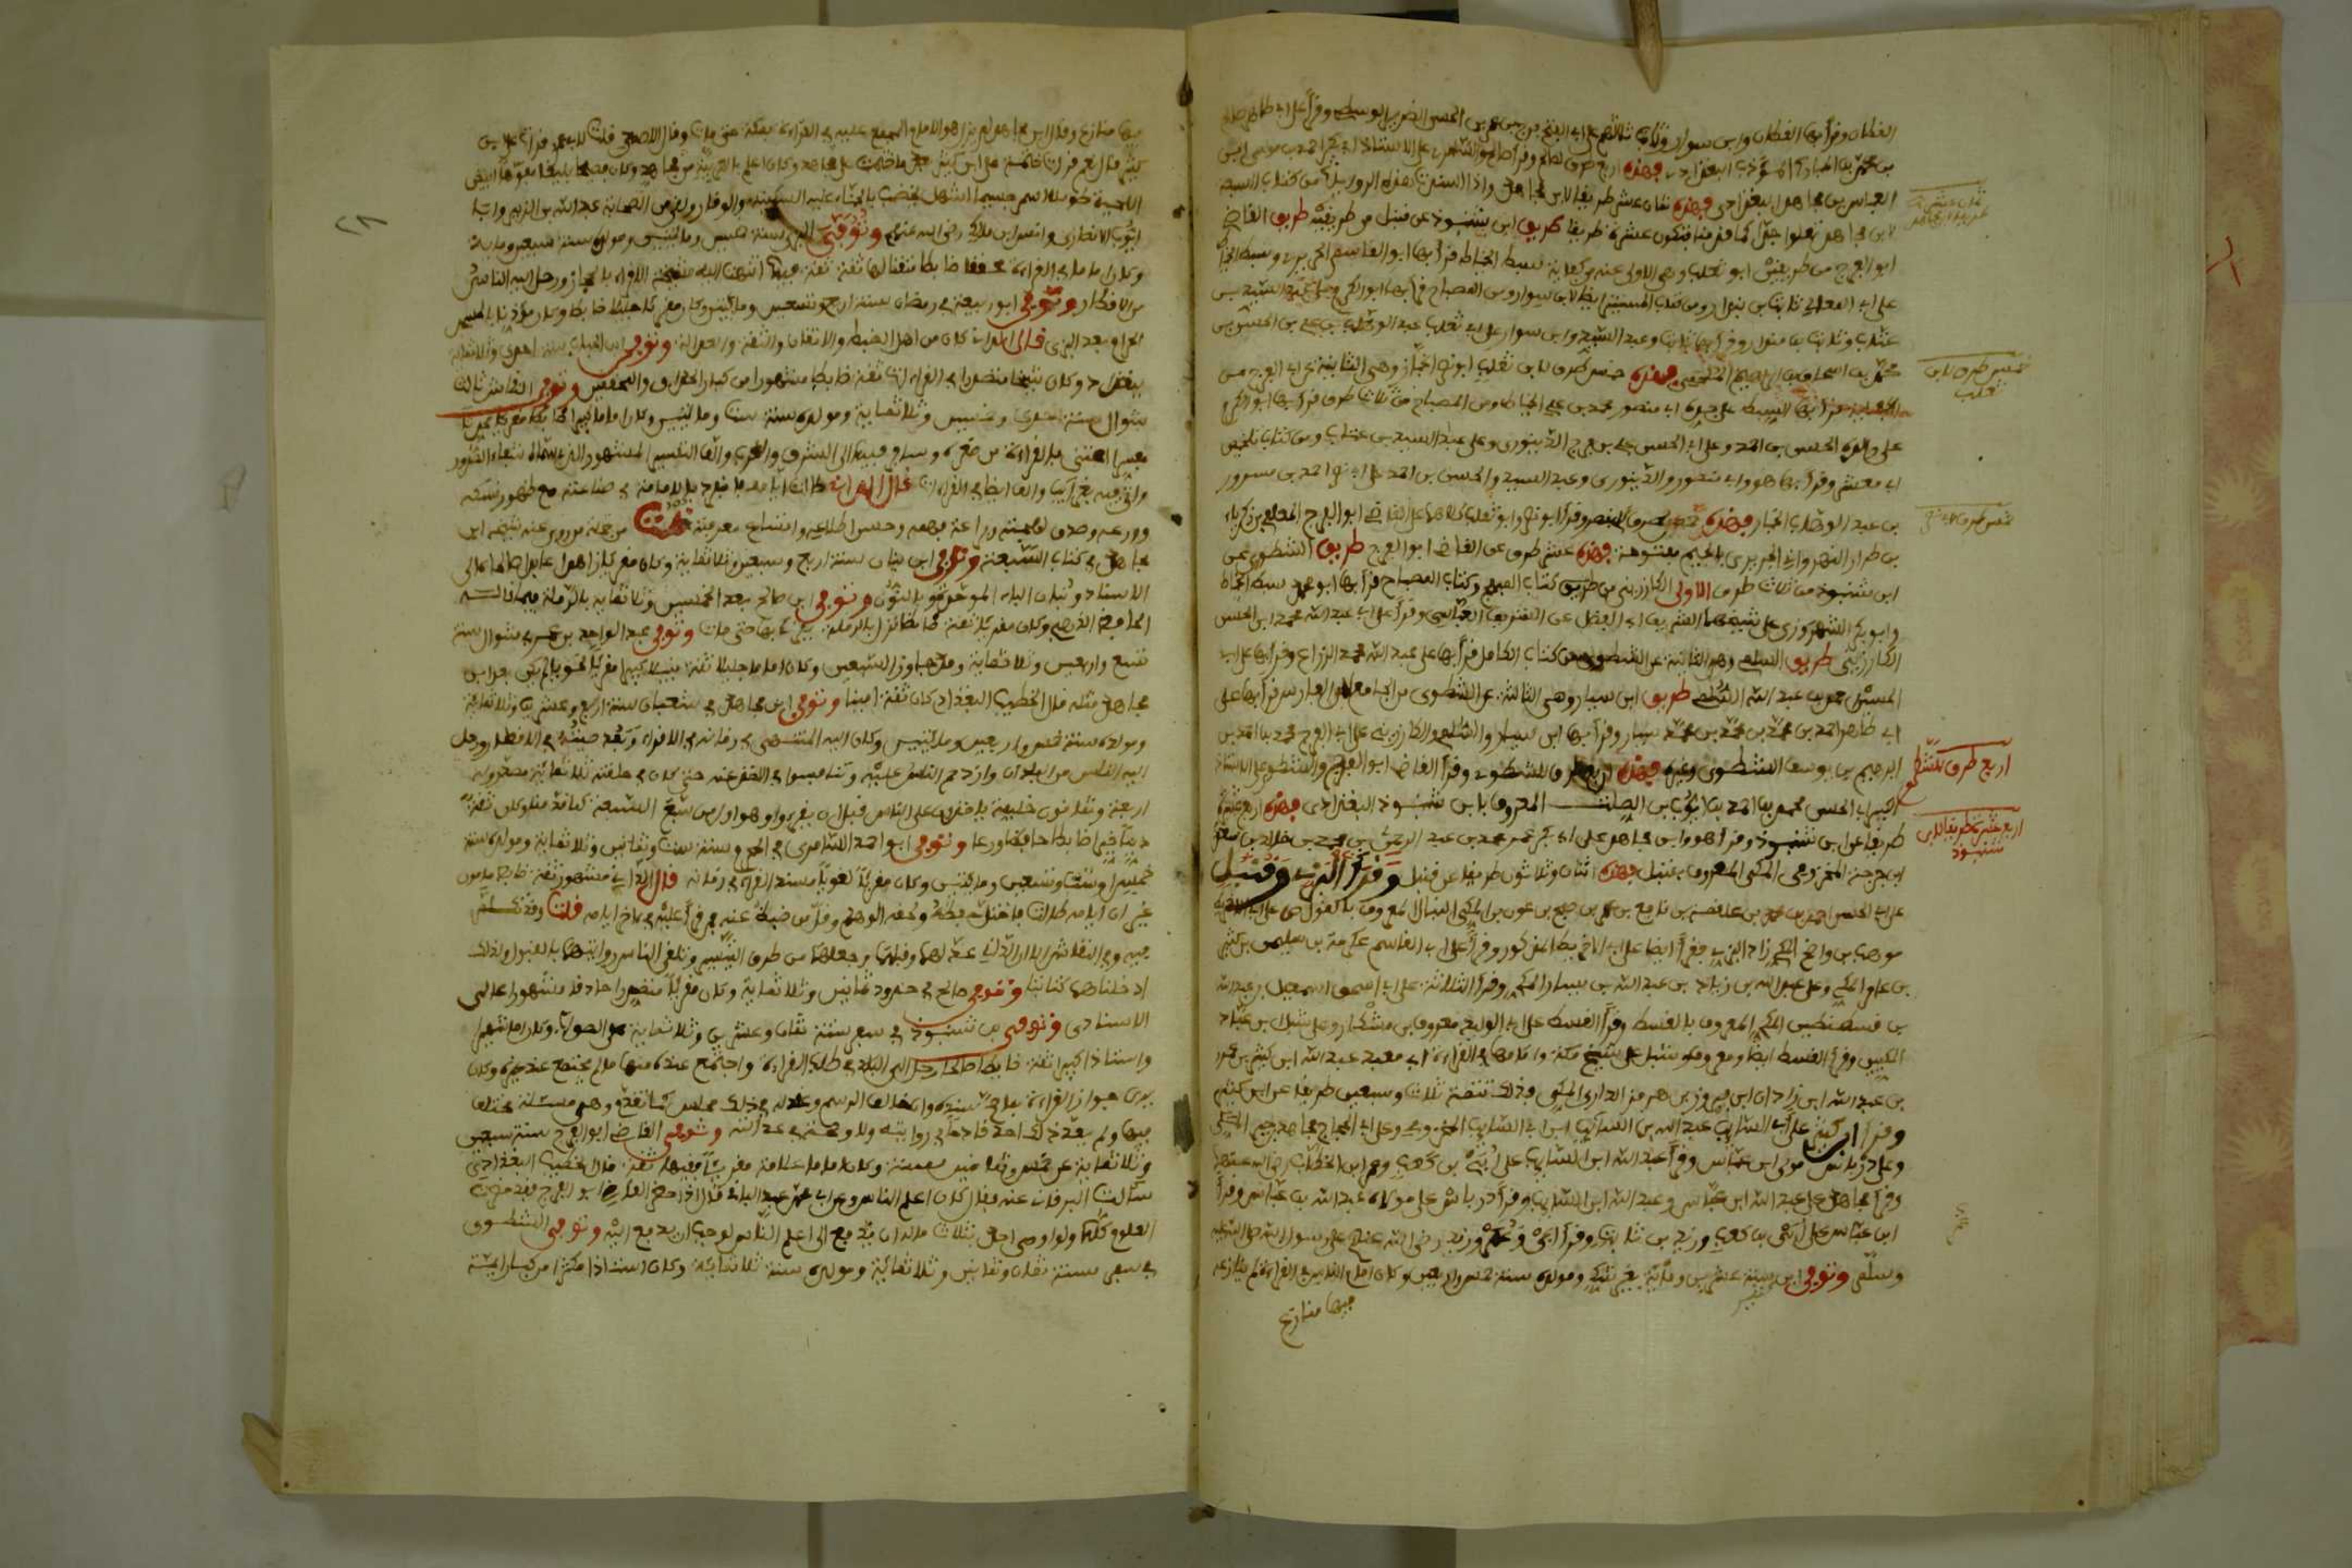 القطان وقرأ بها القطان وابن سوار وثابت ثلاثتهم على ابي الفتح فرج بن عمر بن الحسن الضرير الواسطي وقرأ على ابي طاهر صالح
بن محمد بن المبارك المؤدب البغدادي فهذه اربع طرق لصالح وقرأ صالح والسامري على الاستاذ ابي بكر احمد بن موسى بن
العباس بن مجاهد البغدادي فهذه ثمان عشر طريقا لابن مجاهد
لابن مجاهد طريق ابن شنبوذ عن قنبل من طريقيه طريق القاضي
ابو الفرج من طريقين ابو تغلب وهي الاولى عنه من كفاية سبط الخياط قرأ بها ابو القاسم الحريري وسبط الخياط
على ابي المعالي ثابت بن بندار ومن كتاب المستنير ايضا لابن سوار ومن المصباح قرأ بها ابو الكرم على عبد السيد بن
عتاب وثابت بن بندار وقرأ بها ثابت وعبد السيد وابن سوار على ابي تغلب عبد الوهاب بن علي بن الحسن بن
محمد بن اسحاق بن ابراهيم الملحمي فهذه خمس طرق لابن تغلب ابو نصر الخباز وهي الثانية عن ابي الفرج من
الكفاية قرأ بها السبط على جده ابي منصور محمد بن علي الخياط ومن المصباح من ثلاث طرق قرأ بها ابو الكرم
على والده الحسن بن احمد وعلى ابي الحسن علي بن الفرج الدينوري وعلى عبد السيد بن عتاب ومن كتاب تلخيص
ابي معشر وقرأ بها هو وابي منصور والدينوري وعبد السيد والحسن بن احمد على ابي نصر احمد بن مسرور
بن عبد الوهاب الخباز فهذه خمس طرق لابي نصر وقرأ ابو نصر وابو تغلب كلاهما على القاضي ابو الفرج المعافى بن زكرياء
بن طرار النهرواني الجريري بالجيم مفتوحة فهذه عشر طرق عن القاضي ابو الفرج طريق الشطوي عن
ابن شنبوذ من ثلاث طرق الاولى الكارزيني من طريق كتاب المبهج وكتاب المصباح قرأ بها ابو محمد سبط الخياط
وابو بكر الشهرزوري على شيخهما الشريف ابي الفضل عن الشريف العباسي وقرأ على ابي عبد الله محمد ابن الحسن
الكارزيني طريق السلمي وهي الثانية عن الشطوي من كتاب الكامل قرأ بها على عبد الله محمد الزراع وقرأ بها على ابي
الحسين محمد بن عبد الله السلمي طريق ابن سيار وهي الثالثة عن الشطوي من الجامع لابن الفارس قرأ بها على
ابي طاهر احمد بن محمد بن محمد بن محمد سيار وقرأ بها ابن سيار والسلمي والكارزيني على ابي الفرج محمد بن احمد بن
ابرهيم بن يوسف الشطوي وغيره فهذه اربع طرق للشطوي وقرأ القاضي ابو الفرج والشطوي على الاستاذ
الكبير ابي الحسن محمد بن احمد بن ايوب بن الصلت المعروف بابن شنبوذ البغدادي فهذه اربع عشرة
طريقا عن ابن شنبوذ وقرأ هو وابن مجاهد على ابي عمر محمد بن عبد الرحمن بن محمد بن خالد بن سعيد
ابن جرجة المخزومي المكي المعروف بقنبل فهذه اثنان وثلاثون طريقا عن قنبل وقرأ البزي وقنبل
على ابي الحسن احمد بن محمد بن علقمة بن نافع بن عمر بن صبح بن عون المكي النبال المعروف بالقواس على ابي الاخريط
موهب بن واضح المكي زاد البزي فقرأ ايضا على ابي الاخريط المذكور وقرأ على ابي القاسم عكرمة بن سليمن بن كثير
بن عامر المكي وعلى عبد الله بن زياد بن عبد الله بن يسار المكي وقرأ الثلاثة على ابي اسحق اسمعيل بن عبد الله
بن قسطنطين المكي المعروف بالقسط وقرأ القسط على ابي الوليد معروف بن مشكان وعلى شبل بن عباد
المكيين وقرأ القسط ايضا ومعروف وشبل على شيخ مكة وامامها في القراءة ابي معبد عبد الله ابن كثير بن عمرو
بن عبد الله ابن زاذان ابن فيروزن بن هرمز الداري المكي فذلك تتمة ثلاث وسبعين طريقا عن ابن كثير
وقرأ ابن كثير على ابي السائب عبد الله بن السائب ابن ابي السائب المخزومي وعلى ابي الحجاج مجاهد بن جبر المكي
وعلى درباس مولى ابن عباس وقرأ عبد الله ابن السائب على ابي بن كعب وعمر ابن الخطاب رضي الله عنهما
وقرأ مجاهد على عبد الله ابن عباس وعبد الله ابن السائب وقرأ درباس على مولاه عبد الله بن عباس وقرأ
ابن عباس على ابي بن كعب وزيد بن ثابت وقرأ ابي وعمر وزيد رضي الله عنهم على رسول الله صلى الله عليه
وسلم وتوفي ابن كثير سنة عشرين ومائة بغير شك ومولده سنة خمس واربعين وكان امام الناس في القراءة لم ينازعه
فيها منازع
خمس طرق لابن
تغلب
خمس طرق لابي نصر
اربع طرق للشطوي
اربع عشر طريقا لابن
شنبوذ
فيها منازع وقال ابن مجاهد لم يزل هو الامام المجمع عليه في القراءة بمكة حتى مات وقال الاصمعي قلت لابي عمرو قرأت على ابن
كثير قال نعم قرأت ختمت على ابن كثير بعد ما ختمت على مجاهد وكان اعلم بالعربية من مجاهد وكان فصيحا بليغا مفوها ابيض
اللحية طويلا اسمر جسيما اشهل يخضب بالحناء عليه السكينة والوقار ولقي من الصحابة عبد الله بن الزبير وابا
ايوب الانصاري وانس ابن مالك رضي الله عنهم وتوفي البزي سنة خمسين ومائتين ومولده سنة سبعين ومائة
وكان اماما في القراءة محققا ضابطا متقنا لها ثقة فيها انتهت اليه مشيخة الاقراء بالحجاز ورحل اليه الناس
من الاقطار وتوفي ابو ربيعة في رمضان سنة اربع وتسعين ومائتين وكان مقرئا جليلا ضابطا وكان مؤذنا بالمسجد
الحرام بعد البزي قال الداني كان من اهل الضبط والاتقان والثقة والعدالة وتوفي
ببغداد وكان شيخا متصدرا في القراءات ثقة ضابطا مشهورا من كبار الحذاق والمحققين وتوفي النقاش ثالث
شوال سنة احدى وخمسين وثلاثماية ومولده سنة ست وستين ومائتين وكان اماما كبيرا
مفسرا اعتنى بالقراءات من صغره وسافر فيها الى الشرق والغرب والف التفسير المشهور الذي سماه شفاء الصدور
واتى فيه بغرائب والف ايضا في القراءات قال الداني طالت ايامه فانفرد بالامامة في صناعته مع ظهور نسكه
وورعه وصدق لهجته وبراعة فهمه وحسن اطلاعه واتساع معرفته قلت من جملة من روى عنه شيخه ابن
مجاهد في كتاب السبعة وتوفي ابن بنان سنة اربع وسبعين وثلاثماية وكان مقرئا زاهدا عابدا صالحا عالي
الاسناد وبنان الباء الموحدة والنون وتوفي ابن صالح بعد الخمسين وثلاثماية بالرملة فيما قاله
الحافظ الذهبي وكان مقرئا ثقة ضابطا نزل بالرملة يقرئ بها حتى مات وتوفي عبد الواحد بن عمر في شوال سنة
تسع واربعين وثلاثماية وقد جاوز السبعين وكان اماما جليلا ثقة نبيلا كبيرا مقرئا نحويا لم يكن بعد ابن
مجاهد مثله قال الخطيب البغدادي كان ثقة امينا وتوفي ابن مجاهد في شعبان سنة اربع وعشرين وثلاثماية
ومولده سنة خمس واربعين ومائتين وكان اليه المنتهى في زمانه في الاقراء وبعد صيته في الاقطار ورحل
اليه الناس من البلدان وازدحم الناس عليه وتنافسوا في الاخذ عنه حتى كان في حلقته ثلاثماية متصدر وله
اربعة وثمانون خليفة ياخذون على الناس قبل ان يقرؤا وهو اول من سبع السبعة كما قدمنا وكان ثقة
دينا خيرا ضابطا حافظا ورعا وتوفي ابو احمد السامري في المحرم سنة ست وثمانين وثلاثماية ومولده سنة
خمس او ست وتسعين ومائتين وكان مقرئا لغويا مسند القراء في زمانه قال الداني مشهور ثقة ضابط مامون
غير ان ايامه طالت فاختل حفظه ولحقه الوهم وقل من ضبط عنه ممن قرأ عليه في اخر ايامه قلت وقد تكلم
فيه وفي النقاش الا ان الداني عدلهما وقبلهما وجعلهما من طرق التيسير وتلقى الناس روايتهما بالقبول ولذلك
ادخلناهما كتابنا وتوفي صالح في حدود ثمانين وثلاثماية وكان مقرئا متصدرا حاذقا مشهورا عالي
الاسنادي وتوفي ابن شنبوذ في صفر سنة ثمان وعشرين وثلاثماية على الصواب وكان اماما شهيرا
واستاذا كبيرا ثقة ضابطا صالحا رحل الى البلاد في طلب القراءة واجتمع عنده منها ما لم يجتمع عند غيره وكان
يرى جواز القراءة بما صح سنده وان خالف الرسم وعقد له في ذلك مجلس كما تقدم وهي مسئلة مختلف
فيها ولم يعد ذلك احد قادحا في روايته ولا وصمة في عدالته وتوفي القاضي ابو الفرج سنة تسعين
وثلاثماية عن خمس وثمانين سنة وكان اماما علامة مقرئا فقيها ثقة قال الخطيب البغدادي
سألت البرقاني عنه فقال كان اعلم الناس وعن ابي محمد عبد الباقي قال اذا حضر القاضي ابو الفرج فقد حضرت
العلوم كلها ولو اوصى احد بثلث ماله ان يدفع الى اعلم الناس لوجب ان يدفع اليه وتوفي الشطوي
في صفر سنة ثمان وثمانين وثلاثمائة ومولده سنة ثلاثمائة وكان استاذا مكثرا من كبار ائمة